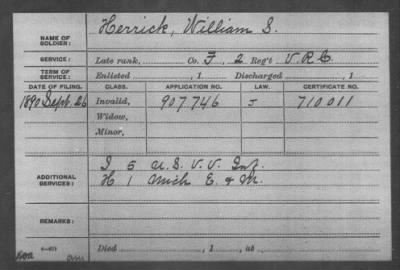 NAME OF SOLDIER: Herrick, William S.
SERVICE: Late rank, Co. F, 2 Reg't V.R.C.
TERM OF SERVICE: Enlisted , 1 Discharged , 1
DATE OF FILING. CLASS. APPLICATION NO. LAW. CERTIFICATE NO.
1890 Sept. 26 Invalid, 907,746 J 710011
Widow,
Minor,
ADDITIONAL SERVICES: I 5 U.S.V.V. Inf.
H 1 Mich E. & M.
REMARKS:
Died , 1 , at